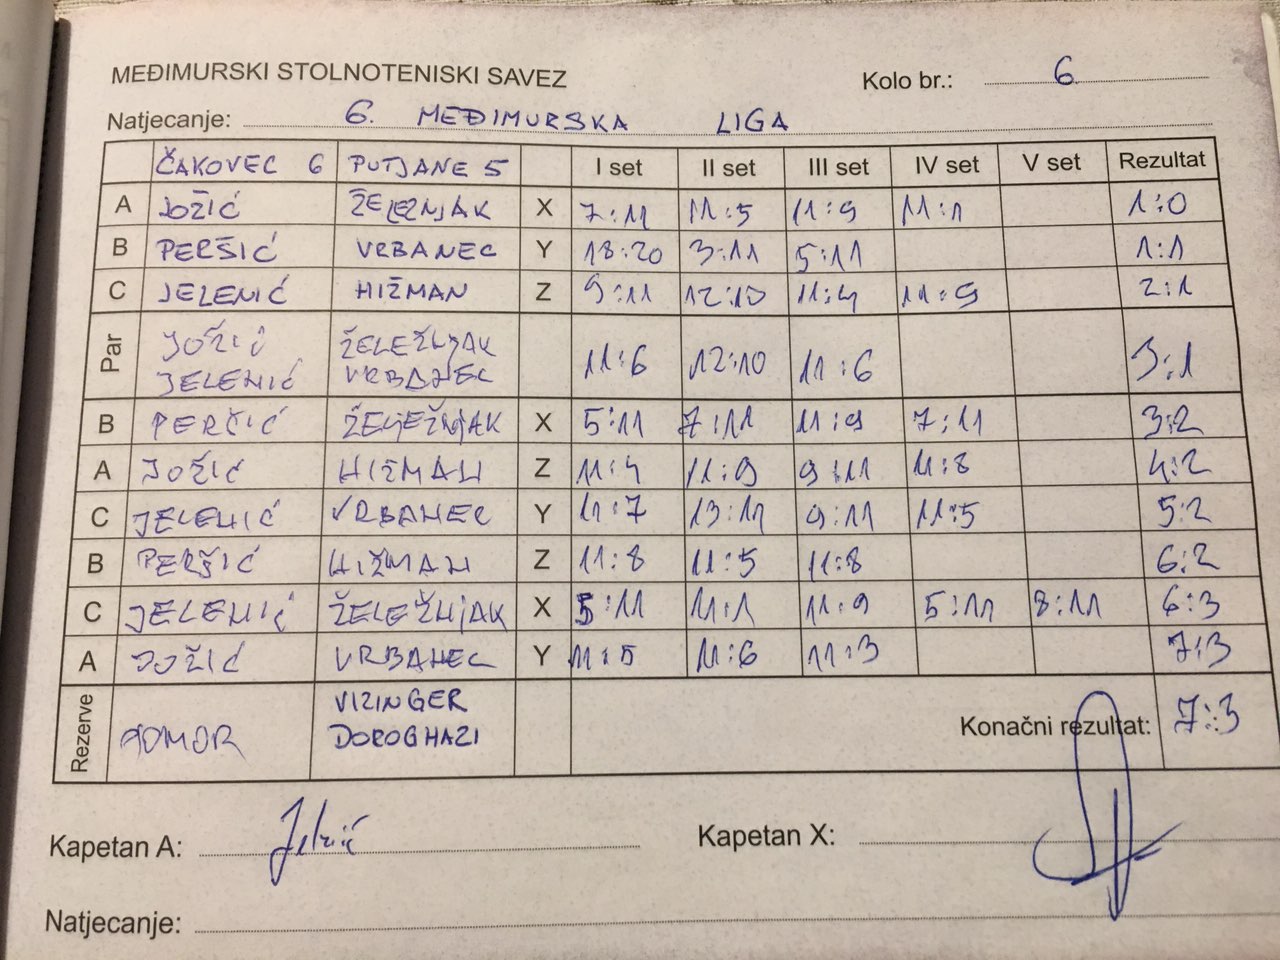 MEĐIMURSKI STOLNOTENISKI SAVEZ Kolo br.: 6
Natjecanje: 6. MEĐIMURSKA LIGA
ČAKOVEC 6 PUTJANE 5 I set II set III set IV set V set Rezultat
A JOŽIĆ ŽELEZNJAK X 7:11 11:5 11:9 11:1 1:0
B PERŠIĆ VRBANEC Y 18:20 3:11 5:11 1:1
C JELENIĆ HIŽMAN Z 9:11 12:10 11:4 11:9 2:1
Par JOŽIĆ ŽELEŽNJAK
JELENIĆ VRBANEC 11:6 12:10 11:6 3:1
B PERČIĆ ŽELJEŽNJAK X 5:11 7:11 11:9 7:11 3:2
A JOŽIĆ HIŽMAN Z 11:4 11:9 9:11 11:8 4:2
C JELENIĆ VRBANEC Y 11:7 13:11 9:11 11:5 5:2
B PERŠIĆ HIŽMAN Z 11:8 11:5 11:8 6:2
C JELENIĆ ŽELEŽNJAK X 5:11 11:1 11:9 5:11 8:11 6:3
A JOŽIĆ VRBANEC Y 11:5 11:6 11:3 7:3
Rezerve VIZINGER
GOMOR DOROGHAZI Konačni rezultat: 7:3
Kapetan A: Jelenić Kapetan X:
Natjecanje: